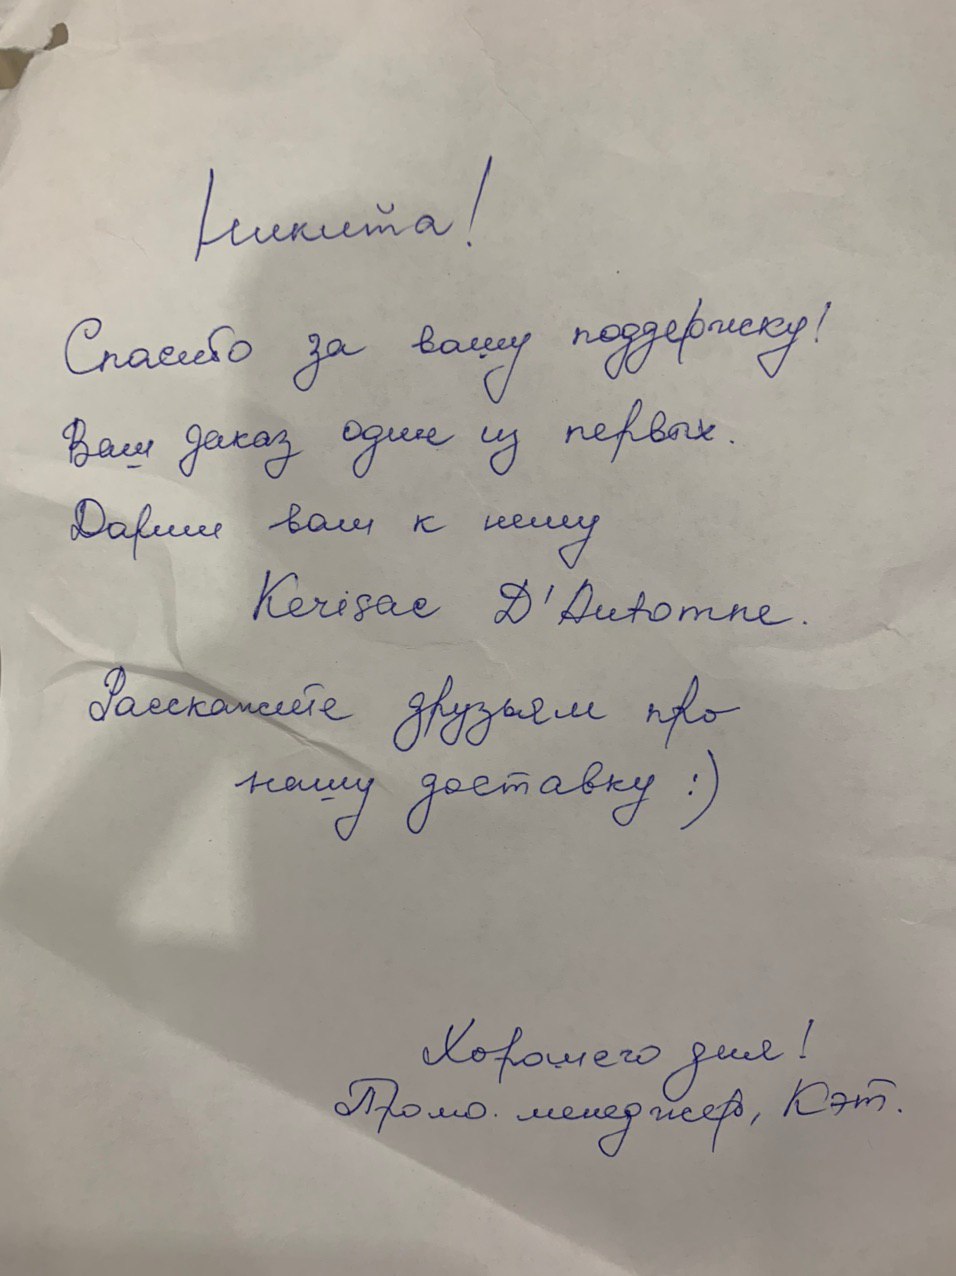 Никита!
Спасибо за вашу поддержку!
Ваш заказ один из первых.
Дарим вам к нему
Kerisac D'Automne.
Расскажите друзьям про
нашу доставку :)
Хорошего дня!
Промо. менеджер, Кэт.